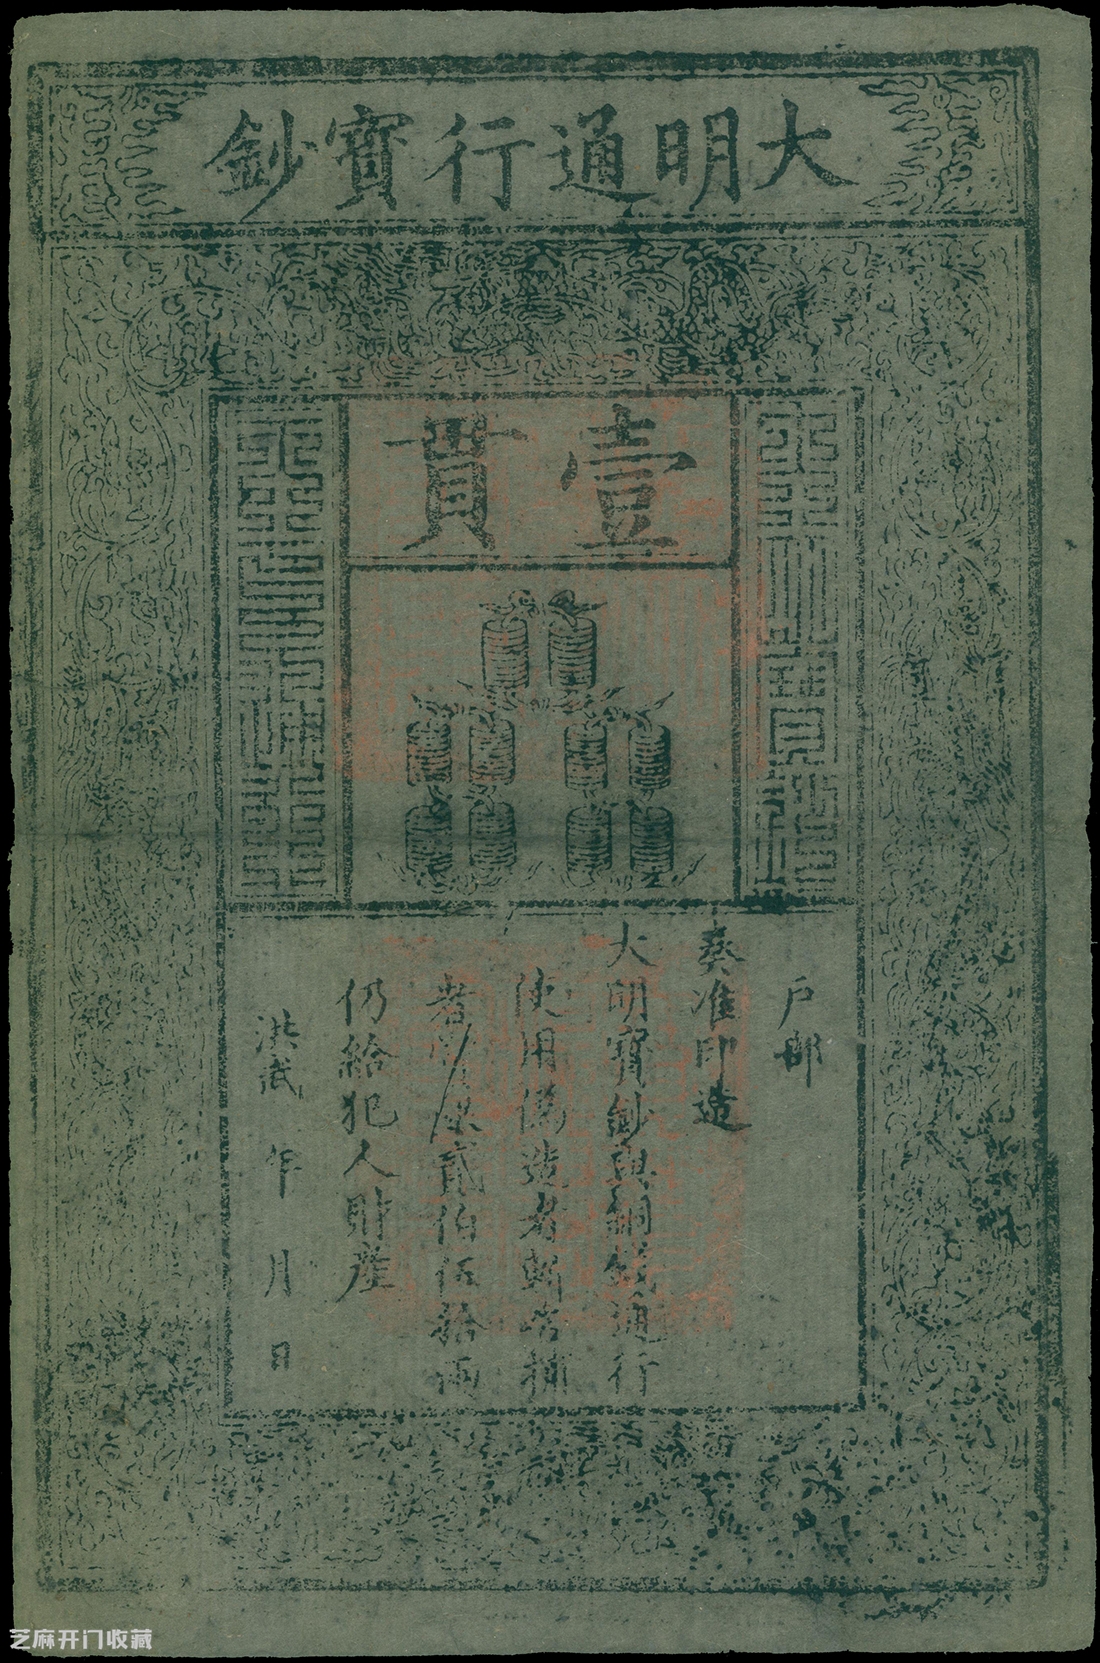 大明通行寶鈔
壹貫
戶部
奏准印造
大明寶鈔與銅錢通行
使用偽造者斬告捕
者賞銀貳伯伍拾兩
仍給犯人財產
洪武 年 月 日
芝麻开门收藏